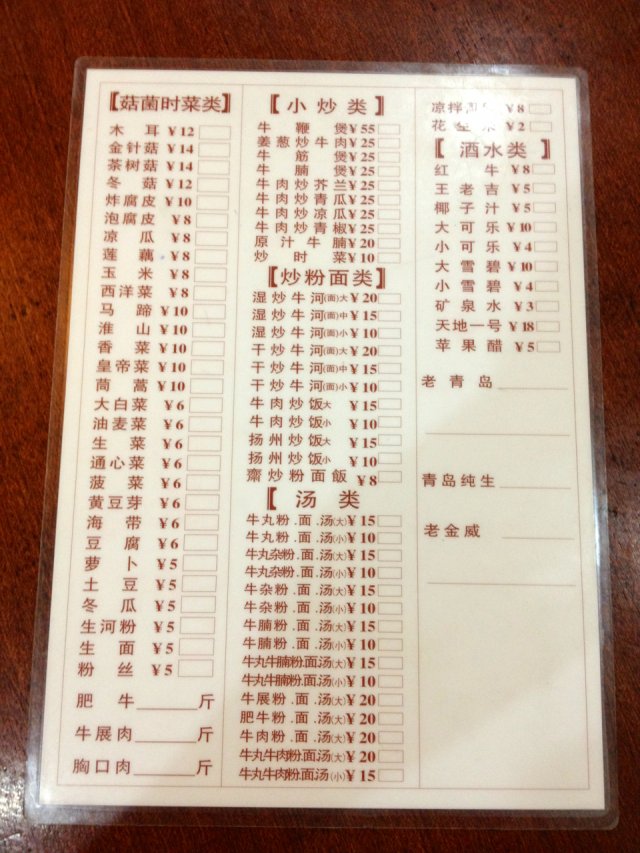 【菇菌时菜类】
木耳 ¥12
金针菇 ¥14
茶树菇 ¥14
冬菇 ¥12
炸腐皮 ¥10
泡腐皮 ¥8
凉瓜 ¥8
莲藕 ¥8
玉米 ¥8
西洋菜 ¥8
马蹄 ¥10
淮山 ¥10
香菜 ¥10
皇帝菜 ¥10
茼蒿 ¥10
大白菜 ¥6
油麦菜 ¥6
生菜 ¥6
通心菜 ¥6
菠菜 ¥6
黄豆芽 ¥6
海带 ¥6
豆腐 ¥6
萝卜 ¥5
土豆 ¥5
冬瓜 ¥5
生河粉 ¥5
生面 ¥5
粉丝 ¥5
肥牛______斤
牛展肉______斤
胸口肉______斤
【小炒类】
牛鞭煲 ¥55
姜葱炒牛肉 ¥25
牛筋煲 ¥25
牛腩煲 ¥25
牛肉炒芥兰 ¥25
牛肉炒青瓜 ¥25
牛肉炒凉瓜 ¥25
牛肉炒青椒 ¥25
原汁牛腩 ¥20
炒时菜 ¥10
【炒粉面类】
湿炒牛河(面)大 ¥20
湿炒牛河(面)中 ¥15
湿炒牛河(面)小 ¥10
干炒牛河(面)大 ¥20
干炒牛河(面)中 ¥15
干炒牛河(面)小 ¥10
牛肉炒饭大 ¥15
牛肉炒饭小 ¥10
扬州炒饭大 ¥15
扬州炒饭小 ¥10
齋炒粉面飯 ¥8
【汤类】
牛丸粉.面.汤(大) ¥15
牛丸粉.面.汤(小) ¥10
牛丸杂粉.面.汤(大) ¥15
牛丸杂粉.面.汤(小) ¥10
牛杂粉.面.汤(大) ¥15
牛杂粉.面.汤(小) ¥10
牛腩粉.面.汤(大) ¥15
牛腩粉.面.汤(小) ¥10
牛丸牛腩粉.面.汤(大) ¥15
牛丸牛腩粉.面.汤(小) ¥10
牛展粉.面.汤(大) ¥20
肥牛粉.面.汤(大) ¥20
牛肉粉.面.汤(大) ¥20
牛丸牛肉粉.面.汤(大) ¥20
牛丸牛肉粉.面.汤(小) ¥15
凉拌 ¥8
花生米 ¥2
【酒水类】
红牛 ¥8
王老吉 ¥5
椰子汁 ¥5
大可乐 ¥10
小可乐 ¥4
大雪碧 ¥10
小雪碧 ¥4
矿泉水 ¥3
天地一号 ¥18
苹果醋 ¥5
老青岛
青岛纯生
老金威